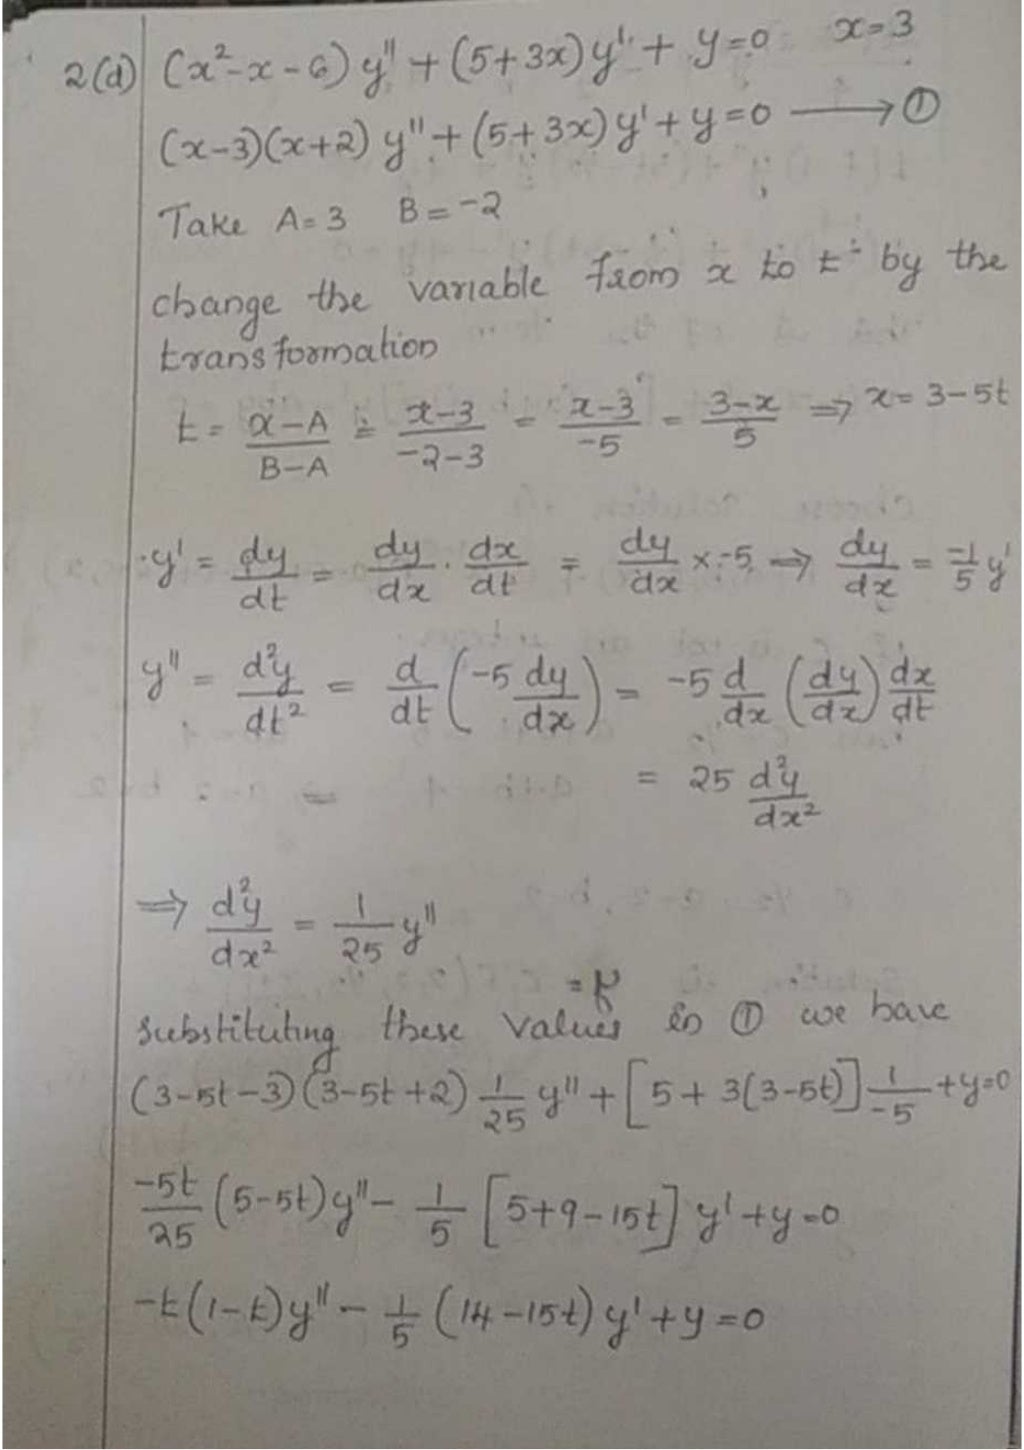 2(d) (x²-x-6) y'' + (5+3x) y' + y=0 x=3
(x-3)(x+2) y'' + (5+3x) y' + y=0 ⟶ ①
Take A=3 B=-2
change the variable from x to t by the
transformation
t = x-A/B-A = x-3/-2-3 = x-3/-5 = 3-x/5 ⇒ x=3-5t
y' = dy/dt = dy/dx · dx/dt = dy/dx × -5 ⇒ dy/dx = -1/5 y'
y'' = d²y/dt² = d/dt (-5 dy/dx) = -5 d/dx (dy/dx) dx/dt
= 25 d²y/dx²
⇒ d²y/dx² = 1/25 y''
substituting these values in ① we have
(3-5t-3)(3-5t+2) 1/25 y'' + [5+3(3-5t)] 1/-5 + y=0
-5t/25 (5-5t) y'' - 1/5 [5+9-15t] y' + y=0
-t(1-t) y'' - 1/5 (14-15t) y' + y=0